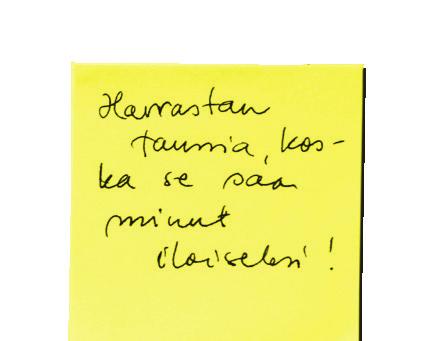 Harrastan
tanssia, kos-
ka se saa
minut
iloiseksi!